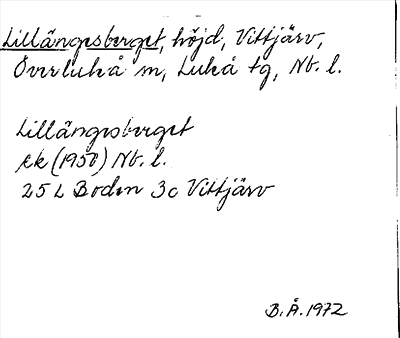 Lillängesberget, höjd, Vittjärv,
Överluleå sn, Luleå tg, Nb. l.
Lillängesberget
ek (1950) Nb. l.
25 L Boden 3c Vittjärv
B.Å. 1972